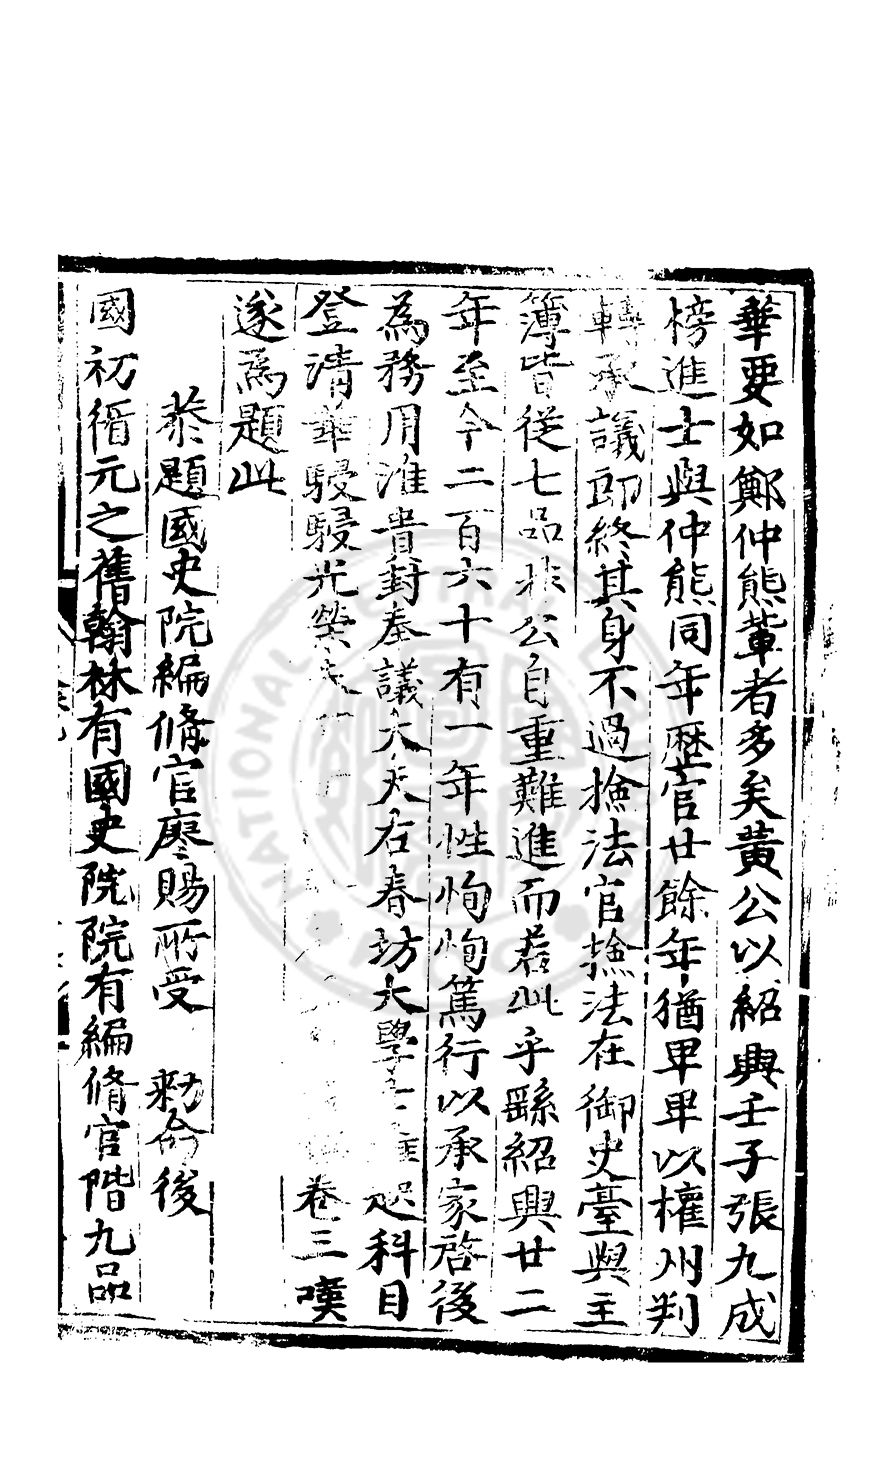 華要如鄭仲熊軰者多矣黄公以紹興壬子張九成
榜進士與仲熊同年歷官廿餘年猶早早以權州判
轉承議郎終其身不過撿法官撿法在御史臺與主
簿皆從七品非公自重難進而若此乎繇紹興廿二
年至今二百六十有一年性恂恂篤行以承家啓後
為務用淮貴封奉議大夫右春坊大學士淮起科目
登清華駸駸光榮 卷三嘆
遂為題此
恭題國史院編脩官廖賜所受 勑命後
國初循元之舊翰林有國史院院有編脩官階九品
NATIONAL CENTRAL